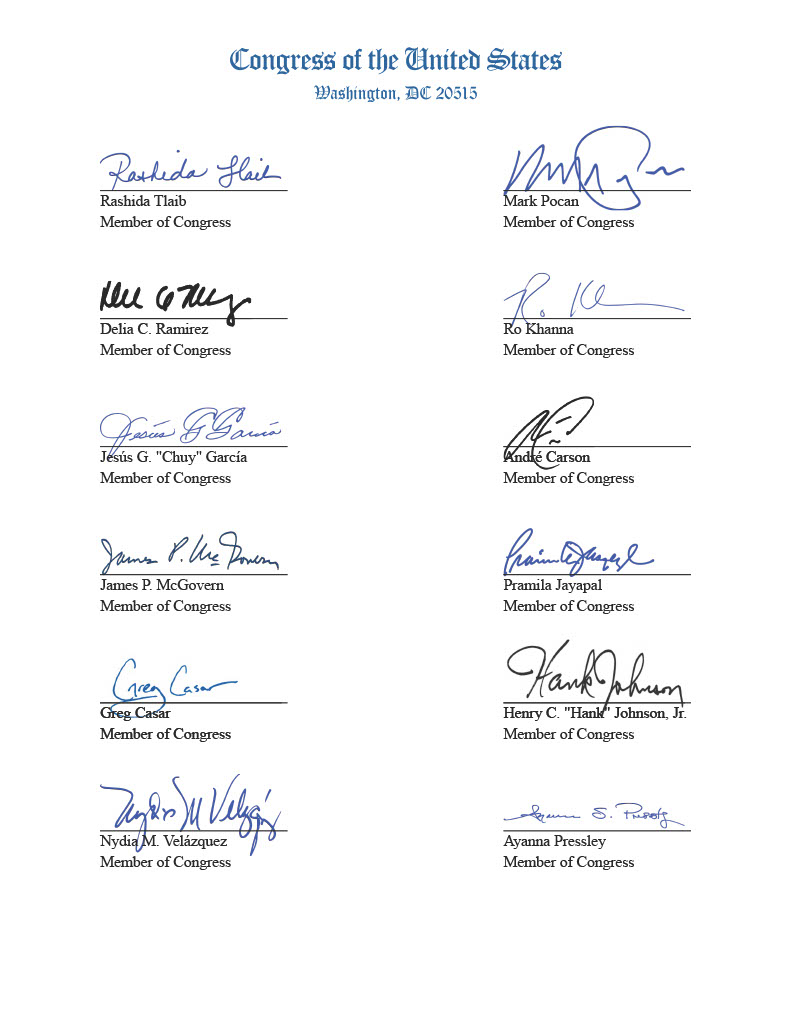 Congress of the United States
Washington, DC 20515
Rashida Tlaib
Rashida Tlaib
Member of Congress
Mark Pocan
Member of Congress
Delia C. Ramirez
Member of Congress
Ro Khanna
Member of Congress
Jesús G. García
Jesús G. "Chuy" García
Member of Congress
André Carson
Member of Congress
James P. McGovern
James P. McGovern
Member of Congress
Pramila Jayapal
Member of Congress
Greg Casar
Greg Casar
Member of Congress
Hank Johnson
Henry C. "Hank" Johnson, Jr.
Member of Congress
Nydia M. Velázquez
Member of Congress
Ayanna Pressley
Member of Congress